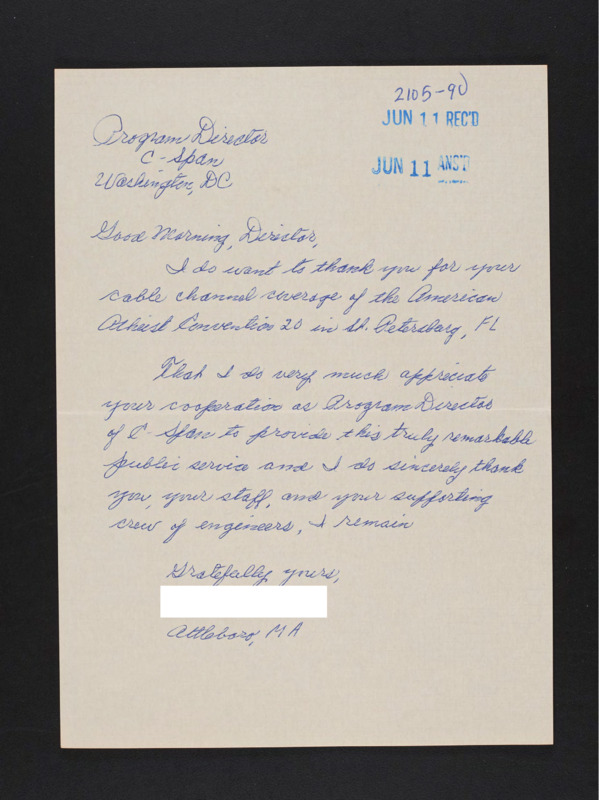 2105-90
JUN 11 REC'D
JUN 11 ANS'D
Program Director
C-Span
Washington, DC
Good Morning, Director,
I do want to thank you for your
cable channel coverage of the American
Atheist Convention 20 in St. Petersburg, FL
That I do very much appreciate
your cooperation as Program Director
of C-Span to provide this truly remarkable
public service and I do sincerely thank
you, your staff, and your supporting
crew of engineers, I remain
Gratefully yours,
Attleboro, MA